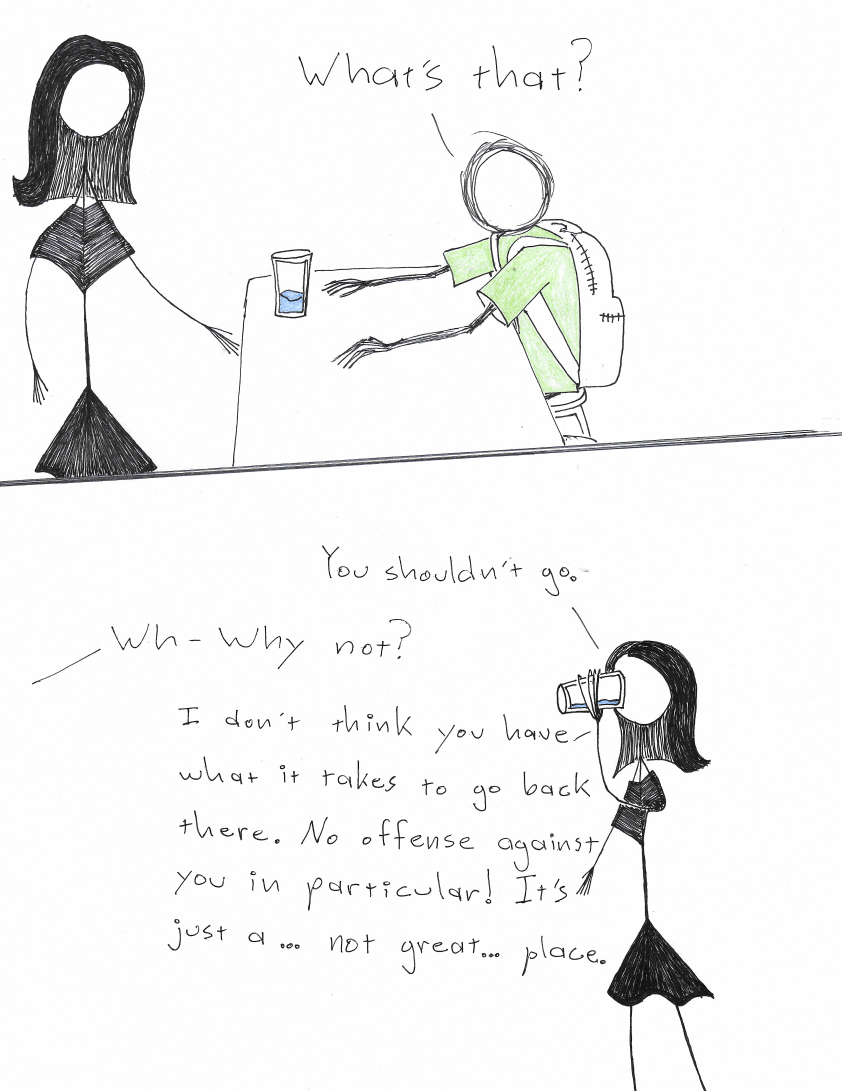 What's that?
You shouldn't go.
Wh-Why not?
I don't think you have
what it takes to go back
there. No offense against
you in particular! It's
just a... not great... place.